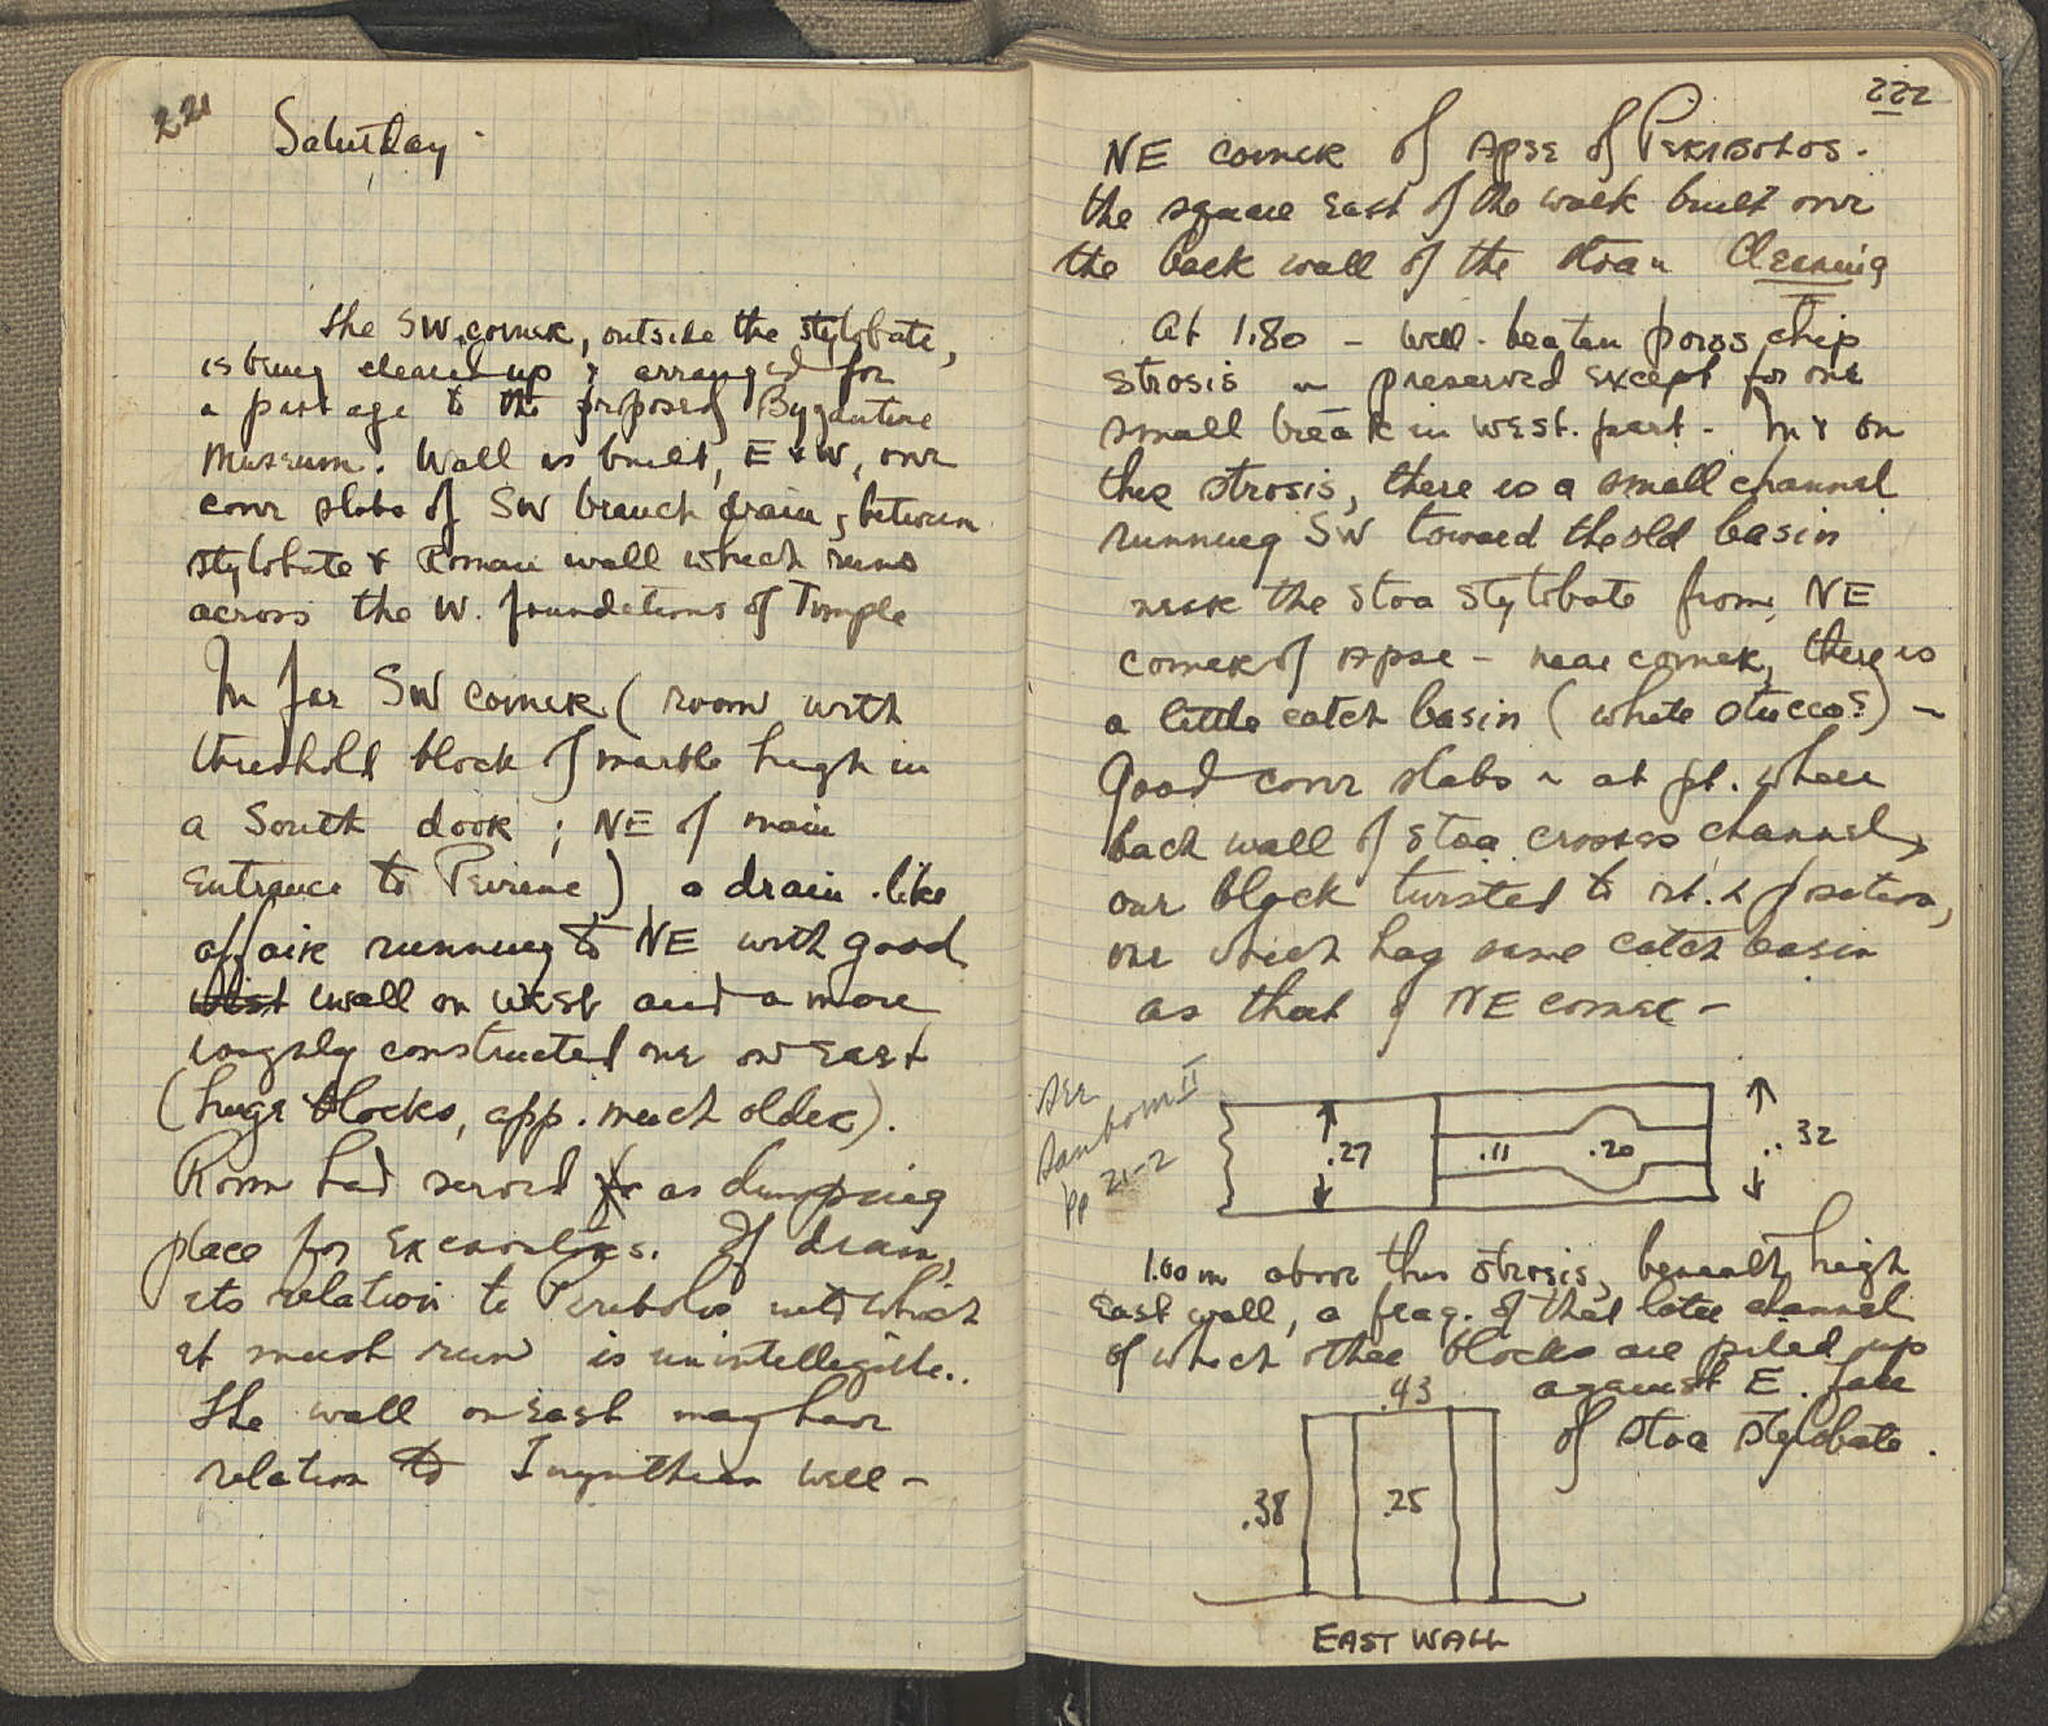 221
Saturday.
The SW. corner, outside the stylobate,
is being cleaned up & arranged for
a passage to the proposed Byzantine
Museum. Wall is built, E & W, over
cover slabs of SW branch drain, between
stylobate & Roman wall which runs
across the W. foundations of Temple
In far SW corner (room with
threshold block of marble high in
a South door; NE of main
Entrance to Peirene) a drain-like
affair running to NE with good
west wall on west and a more
roughly constructed one on East
(huge blocks, app. much older).
Room had served as dumping
place for Excavators. If drain,
its relation to Peribolos into which
it must run is unintelligible..
The wall on East may have
relation to well -
222
NE corner of Apse of Peribolos.
the square East of the work built over
the back wall of the stoa ~ Cleaning
At 1.80 - well-beaten poros chip
strosis ~ preserved except for one
small break in west. part - In & on
this strosis, there is a small channel
running SW toward the old basin
near the stoa stylobate from NE
corner of Apse - near corner, there is
a little catch basin (white stucco?) ~
Good cover slabs ~ at pt. where
back wall of stoa crosses channel,
one block twisted to rt. of position,
one which has same catch basin
as that of NE corner -
See
Sanborn II
pp 21-2
.27
.11
.20
.32
1.00 m above this strosis, beneath high
East wall, a frag. of that later channel
of which other blocks are piled up
against E. face
of stoa stylobate.
.43
.38
.25
EAST WALL